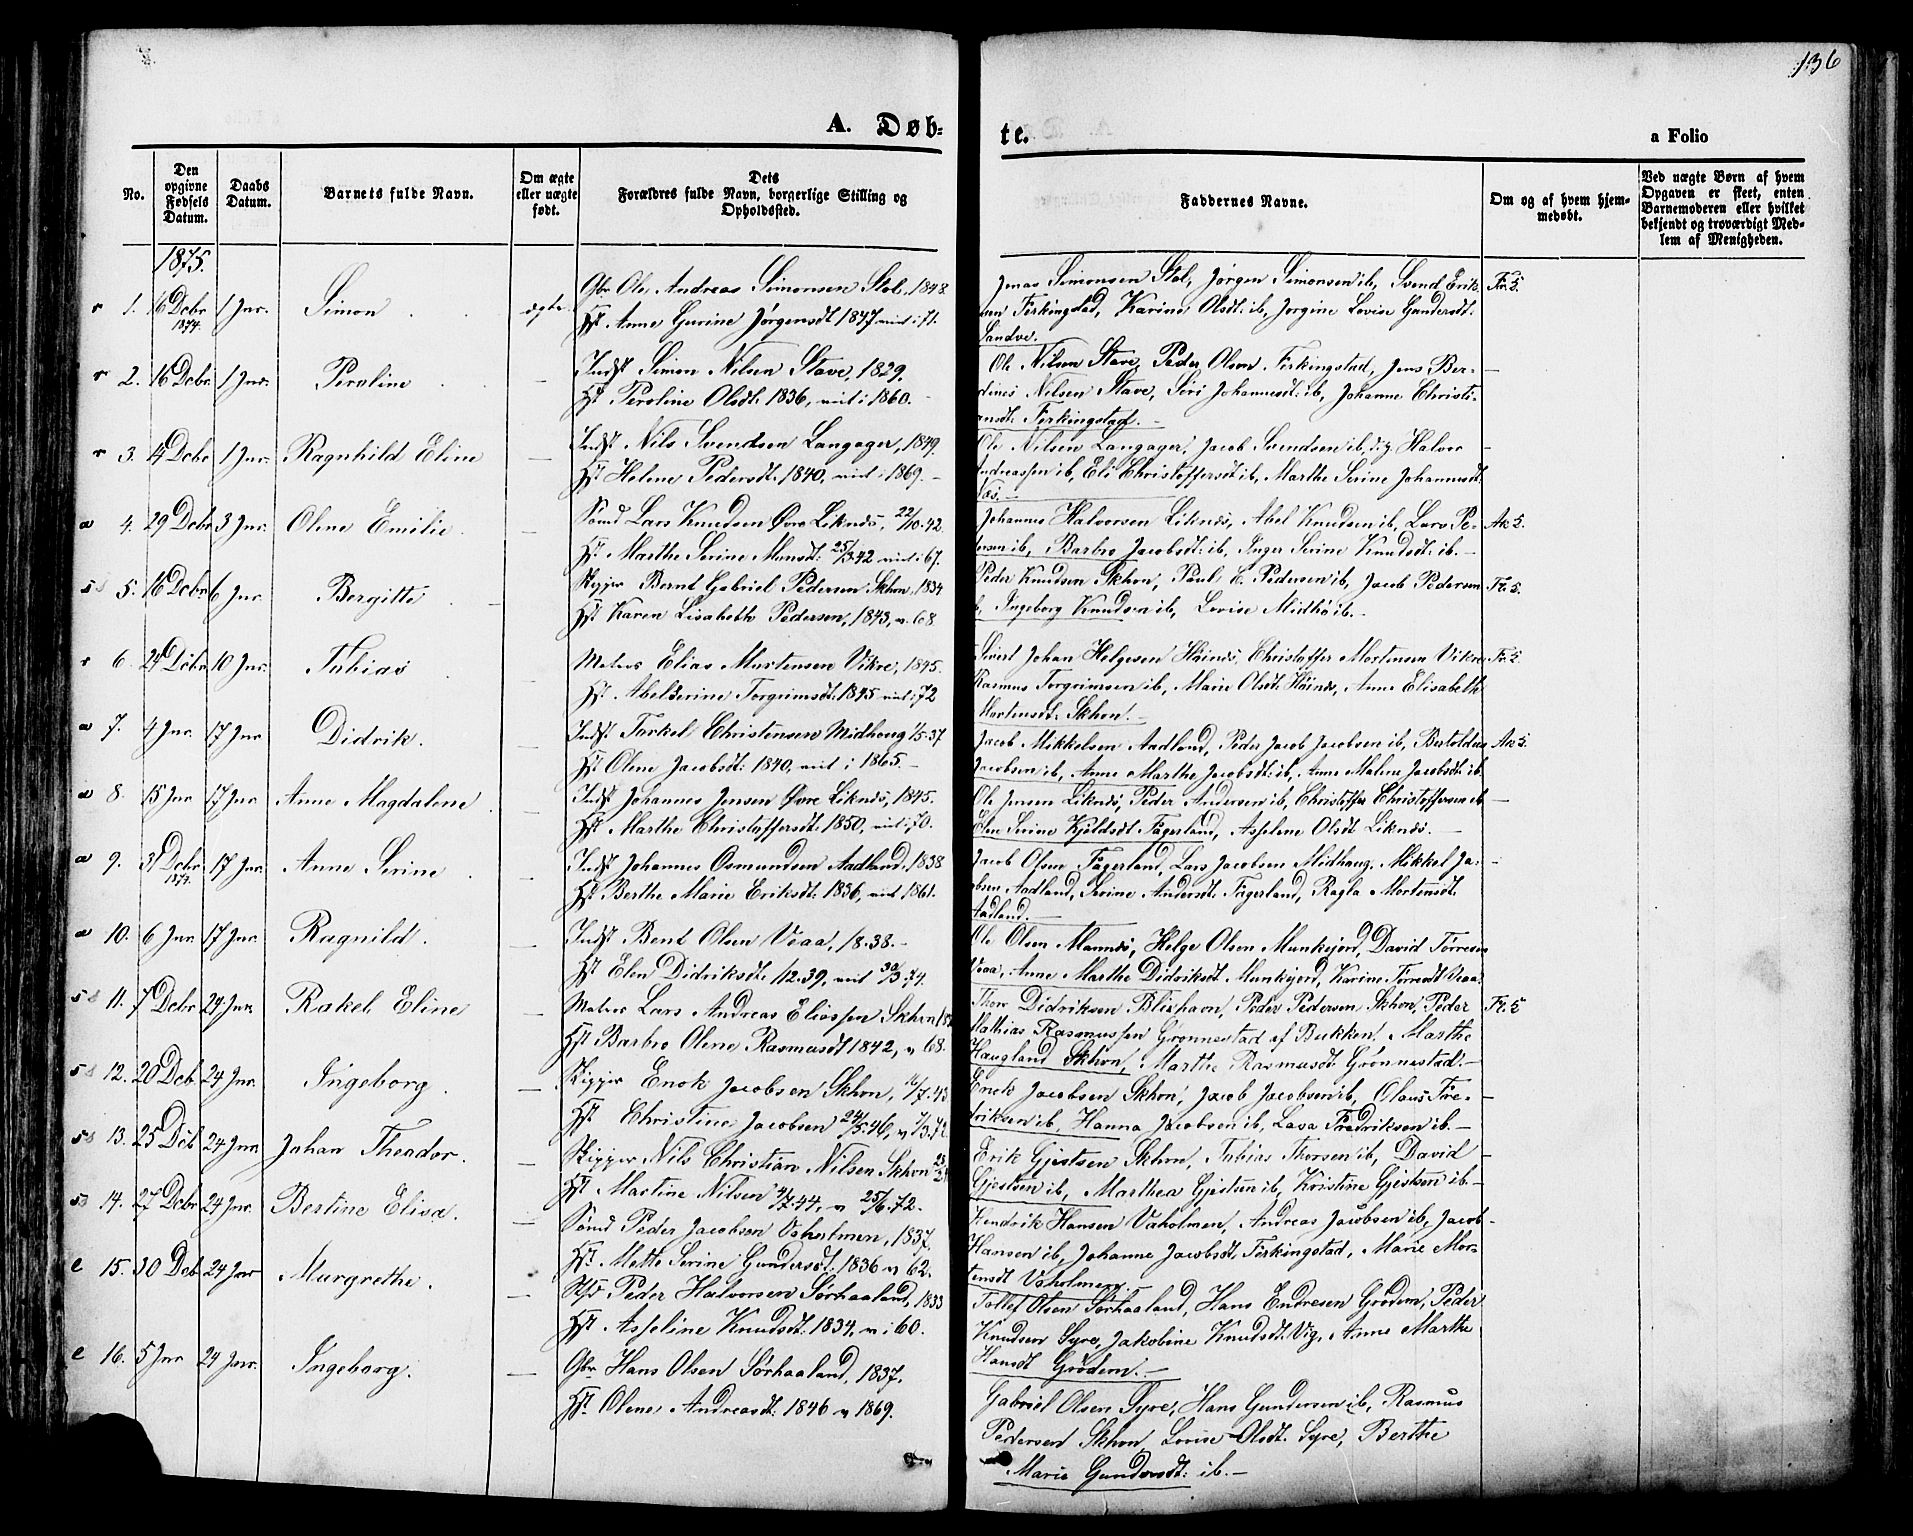 136
A. Døb-
te.
a Folio
No.
Den opgivne Fødsels Datum.
Daabs Datum.
Barnets fulde Navn.
Om ægte eller uægte født.
Dets Forældres fulde Navn, borgerlige Stilling og Opholdssted.
Faddernes Navne.
Om og af hvem hjemmedøbt.
Ved uægte Børn af hvem Opgaven er skeet, enten Barnemoderen eller hvilket bekjendt og troværdigt Medlem af Menigheden.
1875.
r 1. 16 Dcbr 1874. 1 Jnr. Simon ægte Gbr Ole Andreas Simonsen Stol, 1848.
Hst Anne Gurine Jørgensdt 1847 viet i 71.
Jonas Simonsen Stol, Jørgen Simonsen ib, Svend Erik- Fr. 5.
sen Ferkingstad, Karine Olsdt: ib, Jorgine Lovise Gundersdt:
Sandve.
r 2. 16 Dcbr. 1 Jnr. Peroline — Indst Simon Nilsen Stave, 1829.
Hst Peroline Olsdt: 1836, viet i 1860.-
Ole Nilsen Stave, Peder Olsen Ferkingstad, Jens Ber- —
dines Nilsen Stave, Siri Johannesdt: ib, Johanne Christi-
ansdt: Ferkingstad.-
r 3. 14 Dcbr 1 Jnr. Ragnhild Eline — Indst Nils Svendsen Langager, 1849.
Hst Helene Pedersdt: 1840, viet i 1869.-
Ole Nilsen Langager, Jacob Svendsen ib, Halvor —
Andreassen ib, Eli Christoffersdt ib, Marthe Serine Johannesdt.
Næs.-
a 4. 29 Dcbr 3 Jnr. Oline Emilie. — Lars Knudsen Øvre Liknæs, 22/10.42.
Hst. Marthe Serine Monsdt: 25/3 42 viet i 67.
Johannes Halvorsen Liknæs, Abel Knudsen ib, Lars Pe- Ak 5.
dersen ib, Barbro Jacobsdt: ib, Inger Serine Knudsdt: ib.-
s 5. 16 Dcbr. 6 Jnr. Bergitte — Skipper Bernt Gabriel Pedersen Skhvn, 1834
Hst Karen Lisabeth Pedersen, 1843, v. 68.
Peder Knudsen Skhvn, Poul K. Pedersen ib, Jacob Pedersen Fr. 5.
ib, Ingeborg Knudsen ib, Lovise Midhö ib.-
r 6. 24 Dcbr 10 Jnr. Tobias Matros Elias Mortensen Vikre, 1845.
Hst. Abelserine Torgrimsdt: 1845 viet i 72
Sivert Johan Helgesen Höinæs, Christoffer Mortensen Vikre Fr. 5.
Rasmus Torgrimsen ib, Marie Olsdt: Höinæs, Anne Elisabeth
Mortensdt: Skhvn.-
a 7. 4 Jnr. 17 Jnr. Didrik. — Indst Torkel Christensen Midhaug 15.37
Hst Olene Jacobsdt: 1840, viet i 1865.-
Jacob Mikkelsen Aadland, Peder Jacob Jacobsen ib, Bertoldus Ak 5.
Jacobsen ib, Anne Marthe Jacobsdt: ib, Anne Malene Jacobsdt: ib.
a 8. 15 Jnr 17 Jnr. Anne Magdalene — Indst Johannes Jensen Øvre Liknæs, 1845.
Hst Marthe Christoffersdt: 1850, viet i 70.
Ole Jensen Liknæs, Peder Andersen ib, Christoffer Christoffersen ib —
Elen Serine Kjöldsdt Fagerland, Asseline Olsdt Liknæs.-
a 9. 31 Dcbr. 1874. 17 Jnr. Anne Serine — Indst Johannes Osmundsen Aadland, 1838
Hst Berthe Marie Eriksdt: 1836, viet 1861.
Jacob Olsen Fagerland, Lars Jacobsen Midhaug, Mikkel Ja- —
cobsen Aadland, Serine Andersdt: Fagerland, Ragla Mortensdt.
Aadland.-
a 10. 6 Jnr. 17 Jnr. Ragnild. — Indst Bent Olsen Veaa, 18.38.-
Hst Elen Didriksdt: 1/2.39, viet 30/3.74.
Ole Olsen Mannæs, Helge Olsen Munkejord, David Törresen
Veaa, Anne Marthe Didriksdt. Munkejord, Karine Torresdt Veaa.
s 11. 7 Dcbr 24 Jnr. Rakel Eline — Matros Lars Andreas Eliassen Skhvn
Hst Barbro Oline Rasmusdt 1842, v. 68.
Thore Didriksen Blixhavn, Peder Pedersen Skhvn, Peder Fr. 5
Mathias Rasmussen Grönnestad af Bukken, Marthe
Haugland Skhvn, Marthe Rasmusdt Grönnestad.-
s 12. 20 Dcb. 24 Jnr. Ingeborg. — Skipper Enok Jacobsen Skhvn,
Hst Christine Jacobsen 24/5.46, v 7/3.72.
Enok Jacobsen Skhvn, Jacob Jacobsen ib, Olaus Fre- —
driksen ib, Hanna Jacobsen ib, Lasa Fredriksen ib.-
s 13. 25 Dcb. 24 Jnr. Johan Theodor. — Skipper Nils Christian Nilsen Skhvn
Hst Martine Nilsen 4/7 44, v 25/6.72.
Erik Gjestsen Skhvn, Tobias Thorsen ib, David —
Gjestsen ib, Marthea Gjestsen ib, Kristine Gjestsen ib.-
s 14. 27 Dcbr 24 Jnr. Bertine Elisa. — Peder Jacobsen Vaholmen, 1837.
Hst. Mette Serine Gundersdt: 1836 v. 62.
Hendrik Hansen Vaholmen, Andreas Jacobsen ib, Jacob —
Hansen ib, Johanne Jacobsdt, Ferkingstad, Marie Mor-
tensdt Vaholmen.-
e 15. 30 Dcb 24 Jnr Margrethe. — Peder Halvorsen Sørhaaland, 1833
Hst. Asseline Knudsdt: 1834, v. i 60.
Tollef Olsen Sørhaaland, Hans Endresen Grödem, Peder
Knudsen Syre, Jakobine Knudsdt. Vig, Anne Marthe
Hansdt Grödem.-
e 16. 5 Jnr 24 Jnr. Ingeborg. — Gbr Hans Olsen Sørhaaland, 1837.
Hst. Olene Andreasdt: 1846 v 1869.
Gabriel Olsen Syre, Hans Gundersen ib, Rasmus
Pedersen Skhvn, Lovise Olsdt: Syre, Berthe
Marie Gundersdt: ib.-